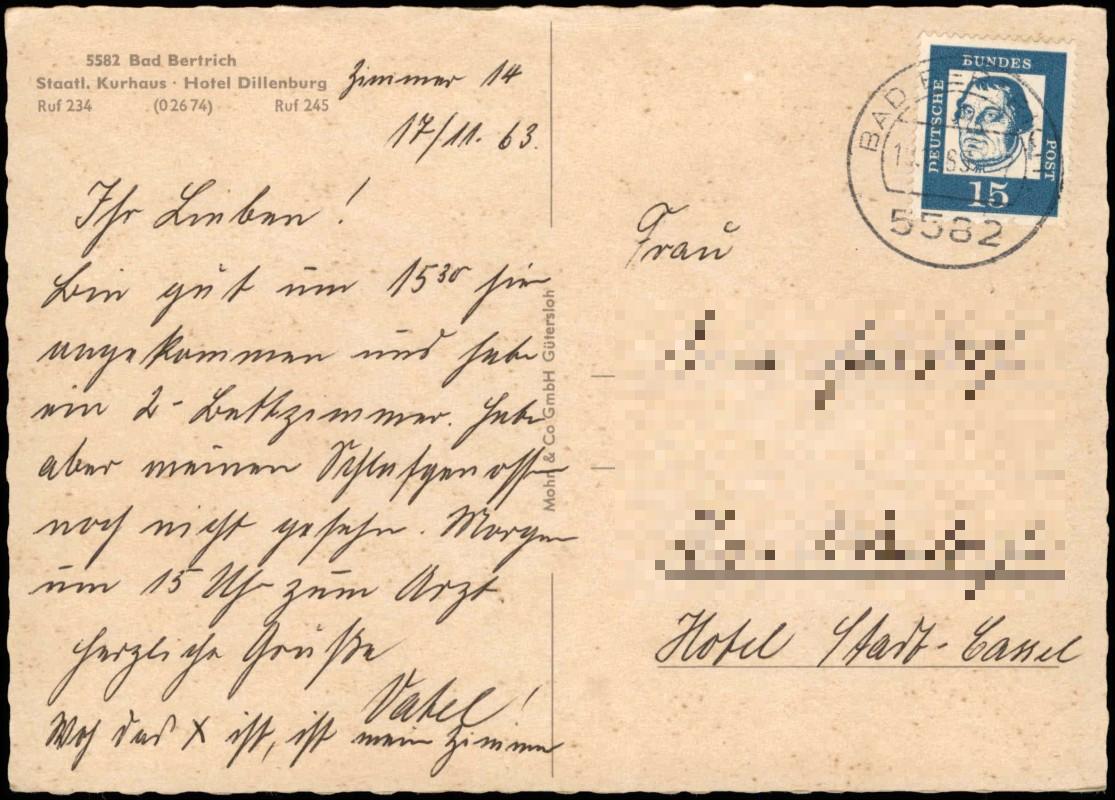 5582 Bad Bertrich
Staatl. Kurhaus · Hotel Dillenburg
Ruf 234 (02674) Ruf 245
Zimmer 14
17/11. 63.
Ihr Lieben!
Bin gut um 15³⁰ hier
angekommen und habe
ein 2-Bettzimmer. Habe
aber meinen Schlafgenossen
noch nicht gesehn. Morgen
um 15 Uhr zum Arzt.
Herzliche Grüße
Vatel!
Wo das X ist, ist mein Zimmer
Mohn & Co GmbH Gütersloh
DEUTSCHE BUNDES POST
15
BAD
63
5582
Frau
Hotel Stadt-Cassel